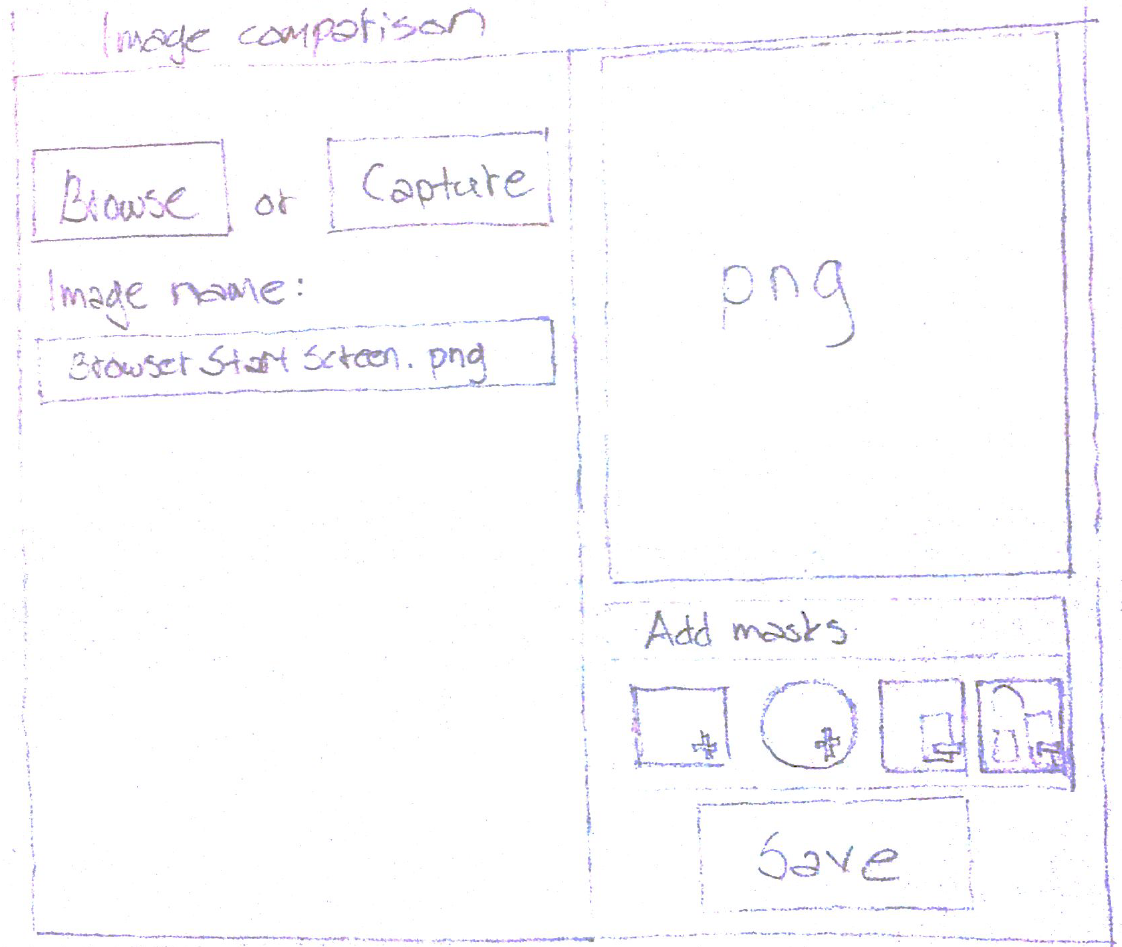 Image comparison
Browse or Capture
Image name:
BrowserStartScreen.png
png
Add masks
Save